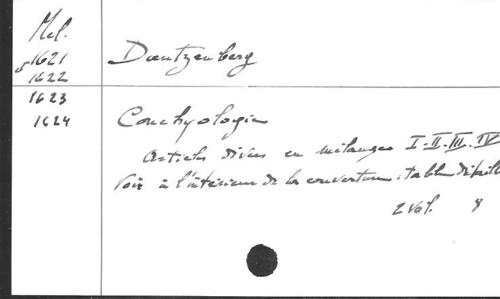 Mel.
1621 Dautzenberg
1622
1623
1624 Conchyologie
Articles divers en mélanges I-II-III-IV
Voir à l'intérieur de la couverture : table détaill
2 vol. 8